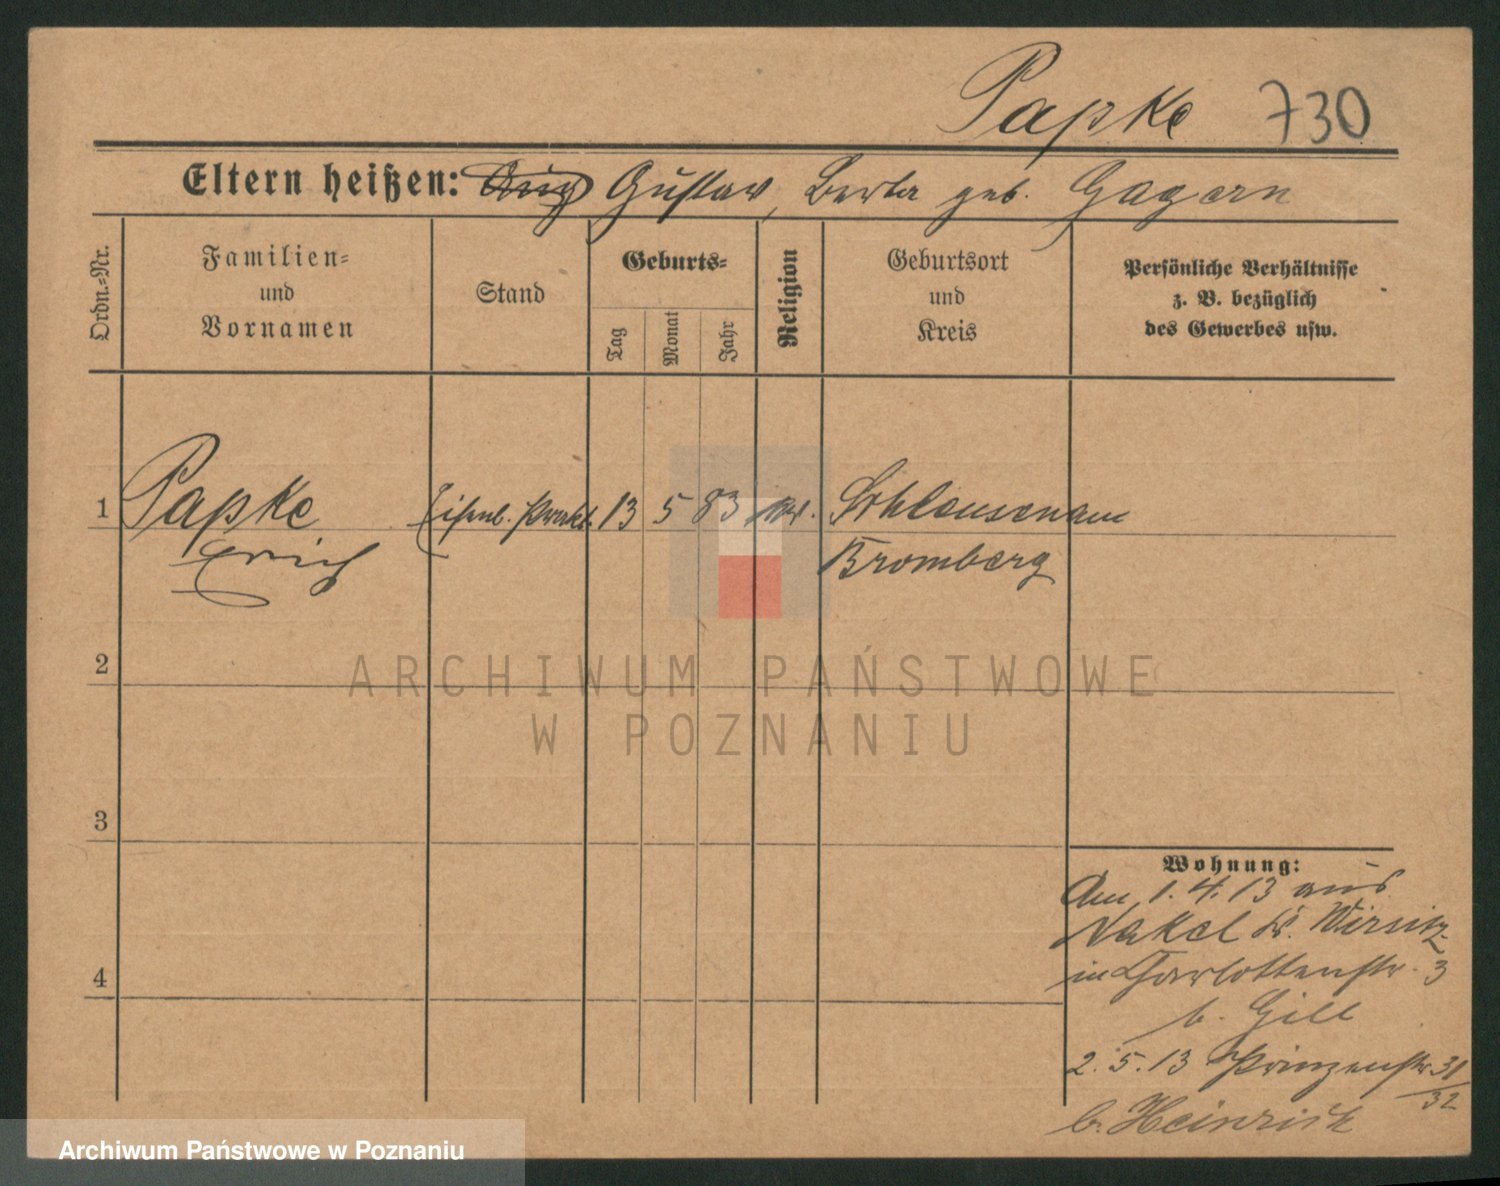 Papke 730
Eltern heißen: Aug Gustav, Berta geb. Gagern
Ordn.=Nr.
Familien=
und
Vornamen
Stand
Geburts=
Tag
Monat
Jahr
Religion
Geburtsort
und
Kreis
Persönliche Verhältnisse
z. B. bezüglich
des Gewerbes usw.
1 Papke Eisenb. 13 5 83 Schleusenau
Erich Bromberg
2
ARCHIWUM PAŃSTWOWE
W POZNANIU
3
Wohnung:
Am 1.4.13 aus
Nakel Kr. Wirsitz
in Charlottenstr. 3
b. Gill
2.5.13 Prinzenstr 31/32
b. Heinrich
4
Archiwum Państwowe w Poznaniu